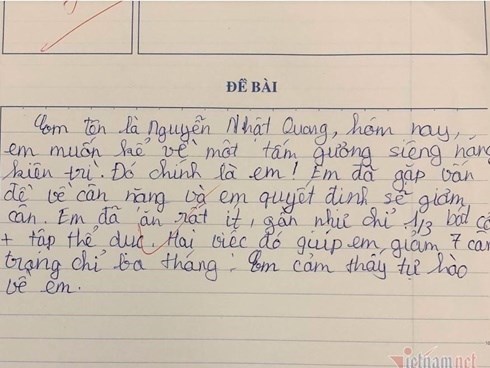 ĐỀ BÀI
Em tên là Nguyễn Nhật Quang, hôm nay,
em muốn kể về một tấm gương siêng năng
kiên trì. Đó chính là em! Em đã gặp vấn
đề về cân nặng và em quyết định sẽ giảm
cân. Em đã ăn rất ít, gần như chỉ 1/3 bát
+ tập thể dục. Hai việc đó giúp em giảm 7 cân
trong chỉ ba tháng. Em cảm thấy tự hào
về em.
vietnamnet